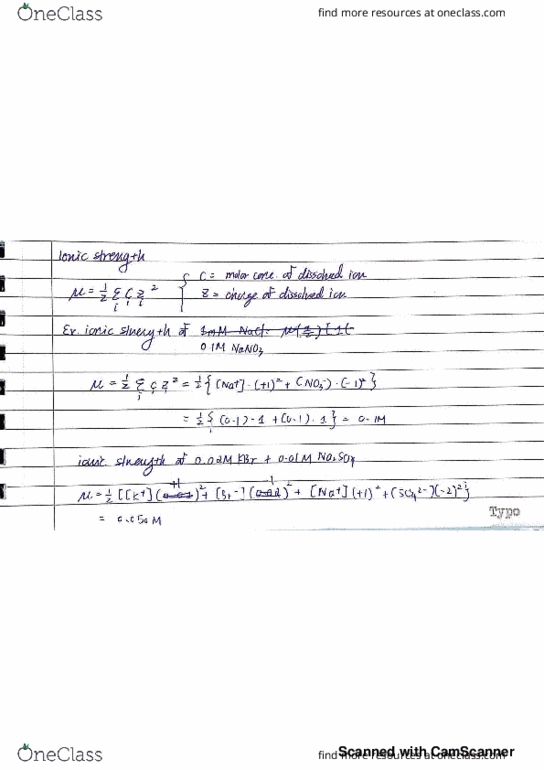 OneClass
find more resources at oneclass.com
Ionic strength
μ = 1/2 Σ C z² { C = molar conc. of dissolved ion
i i i z = charge of dissolved ion
Ex. ionic strength of 1mM NaCl
0.1M NaNO3
μ = 1/2 Σ c z² = 1/2 { [Na+]·(+1)² + [NO3-]·(-1)² }
= 1/2 { (0.1)·1 + (0.1)·1 } = 0.1M
ionic strength of 0.02M KBr + 0.01M Na2SO4
μ = 1/2 [[K+](+1)² + [Br-](1)² + [Na+](+1)² + (SO4²-)(-2)²}
= 0.050 M
Typo
OneClass
find more resources at oneclass.com
Scanned with CamScanner